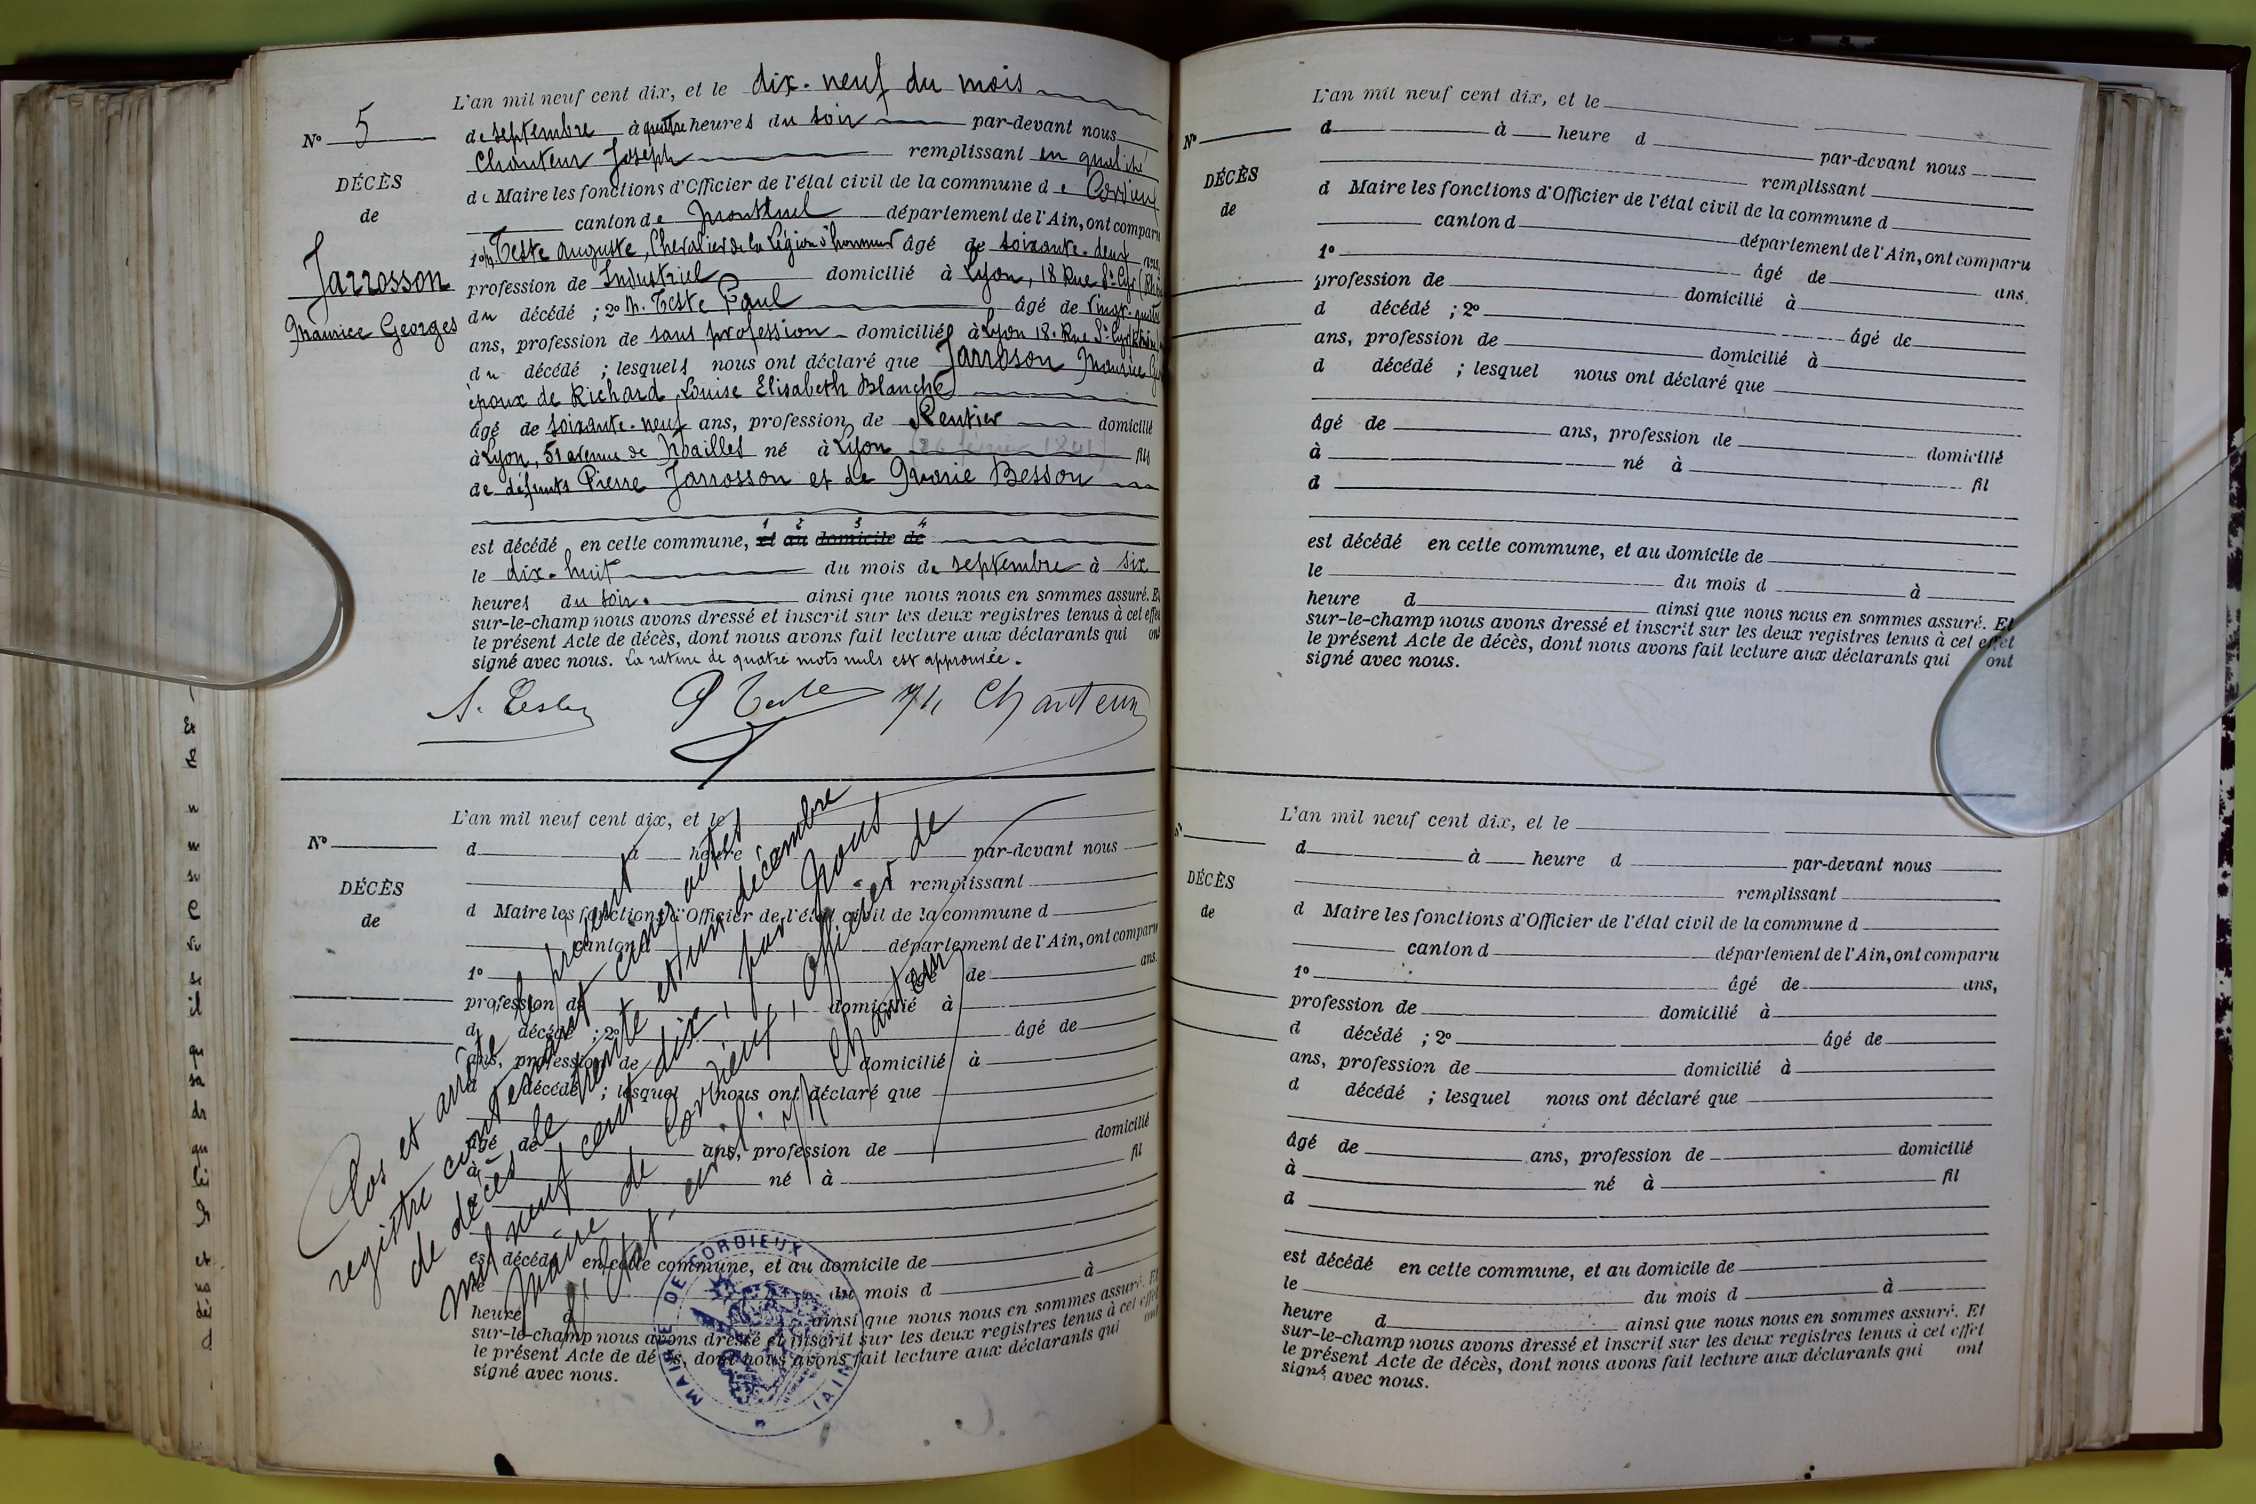 L'an mil neuf cent dix, et le dix-neuf du mois
N° 5
de septembre à quatre heures du soir par-devant nous
Chanteur Joseph remplissant en qualité
DÉCÈS
de Maire les fonctions d'Officier de l'état civil de la commune de Cordieux
de
canton de Montluel département de l'Ain, ont comparu
1° M. Teste Auguste, Chevalier de la Légion d'honneur âgé de soixante-deux ans,
Jarrosson
profession de Industriel domicilié à Lyon, 18 Rue St Cyr
Maurice Georges
du décédé ; 2° M. Teste Paul âgé de vingt-quatre
ans, profession de sans profession domicilié à Lyon 18 Rue St Cyr
du décédé ; lesquels nous ont déclaré que Jarrosson Maurice
époux de Richard Louise Elisabeth Blanche
âgé de soixante-neuf ans, profession de Rentier domicilié
à Lyon, 51 avenue de Noailles né à Lyon 1841 fils
de défunts Pierre Jarrosson et de Marie Besson
1 2 3 4
est décédé en cette commune, et au domicile de
le dix-huit du mois de septembre à six
heures du soir. ainsi que nous nous en sommes assuré. Et
sur-le-champ nous avons dressé et inscrit sur les deux registres tenus à cet effet
le présent Acte de décès, dont nous avons fait lecture aux déclarants qui ont
signé avec nous. La rature de quatre mots nuls est approuvée.
A. Teste P Teste Chanteur
L'an mil neuf cent dix, et le
N°
d à heure par-devant nous
remplissant
DÉCÈS
d Maire les fonctions d'Officier de l'état civil de la commune d
de
canton d département de l'Ain, ont comparu
1° âgé de ans.
profession de domicilié à
d décédé ; 2° âgé de
ans, profession de domicilié à
d décédé ; lesquel nous ont déclaré que
âgé de ans, profession de domicilié
à né à fil
est décédé en cette commune, et au domicile de
le du mois d à
heure d ainsi que nous nous en sommes assuré. Et
sur-le-champ nous avons dressé et inscrit sur les deux registres tenus à cet effet
le présent Acte de décès, dont nous avons fait lecture aux déclarants qui ont
signé avec nous.
Clos et arrêté le présent
registre contenant cinq actes
de décès le trente et un décembre
mil neuf cent dix, par Nous
Maire de Cordieux, officier de
l'Etat-civil. Chanteur
MAIRIE DE CORDIEUX (AIN)
L'an mil neuf cent dix, et le
N°
d à heure d par-devant nous
remplissant
DÉCÈS
d Maire les fonctions d'Officier de l'état civil de la commune d
de
canton d département de l'Ain, ont comparu
1° âgé de ans,
profession de domicilié à
d décédé ; 2° âgé de
ans, profession de domicilié à
d décédé ; lesquel nous ont déclaré que
âgé de ans, profession de domicilié
à né à fil
d
est décédé en cette commune, et au domicile de
le du mois d à
heure d ainsi que nous nous en sommes assuré. Et
sur-le-champ nous avons dressé et inscrit sur les deux registres tenus à cet effet
le présent Acte de décès, dont nous avons fait lecture aux déclarants qui ont
signé avec nous.
L'an mil neuf cent dix, et le
N°
d à heure d par-devant nous
remplissant
DÉCÈS
d Maire les fonctions d'Officier de l'état civil de la commune d
de
canton d département de l'Ain, ont comparu
1° âgé de ans,
profession de domicilié à
d décédé ; 2° âgé de
ans, profession de domicilié à
d décédé ; lesquel nous ont déclaré que
âgé de ans, profession de domicilié
à né à fil
d
est décédé en cette commune, et au domicile de
le du mois d à
heure d ainsi que nous nous en sommes assuré. Et
sur-le-champ nous avons dressé et inscrit sur les deux registres tenus à cet effet
le présent Acte de décès, dont nous avons fait lecture aux déclarants qui ont
signé avec nous.